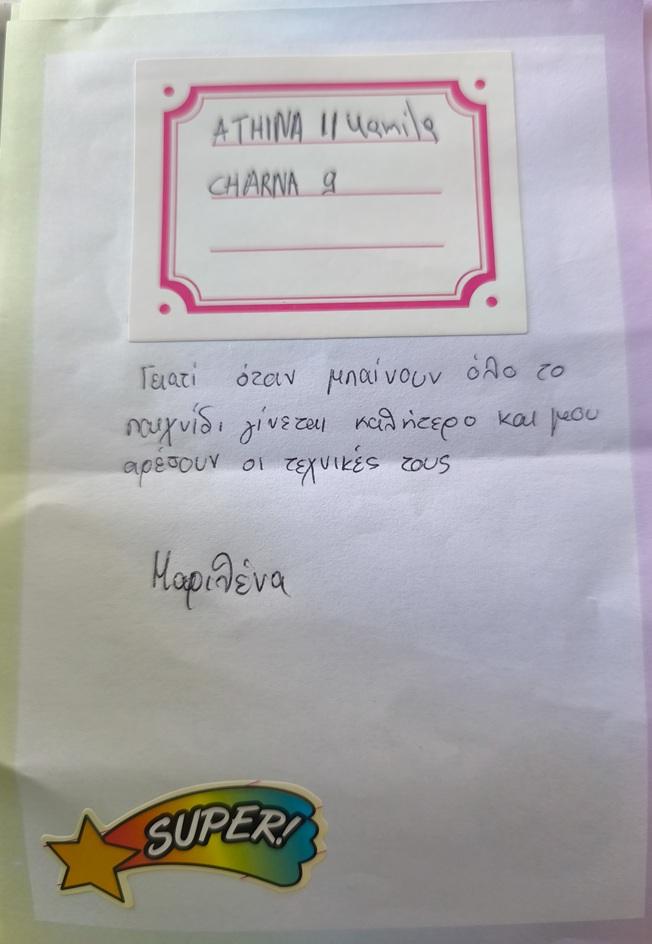 ATHINA 11 Kamila
CHARNA 9
Γειατί όταν μπαίνουν όλο το
παιχνίδι γίνεται καλήτερο και μου
αρέσουν οι τεχνικές τους
Μαριλένα
SUPER!